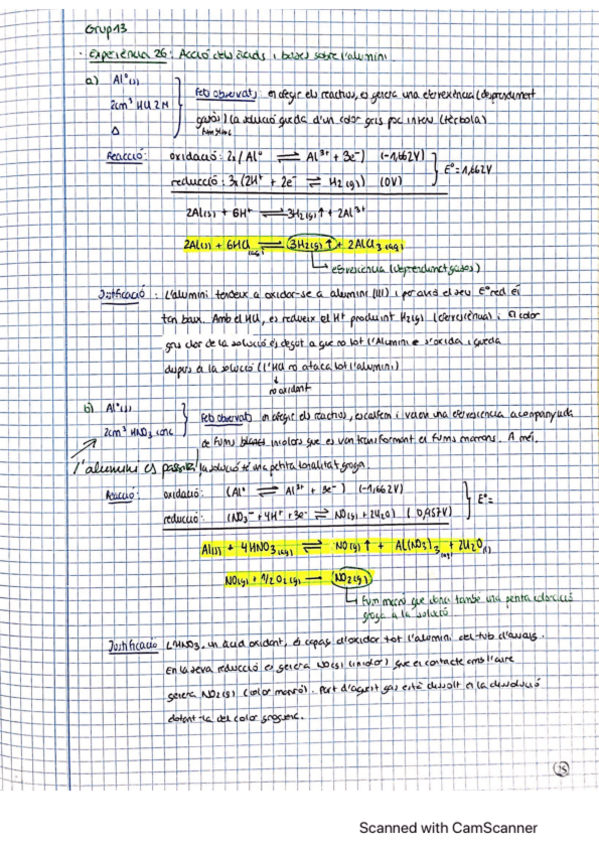 Grup 13
· Experiència 26: Acció dels àcids i bases sobre l'alumini.
a) Al°(s)
2cm³ HCl 2M
Δ
Fets observats: en afegir els reactius, es genera una efervescència (desprendiment
gasós) i la solució queda d'un color gris poc intens (tèrbola)
Reacció: oxidació: 2x(Al° ⇌ Al³⁺ + 3e⁻) (-1,662V)
reducció: 3x(2H⁺ + 2e⁻ ⇌ H₂(g)) (0V)
E°=1,662V
2Al(s) + 6H⁺ ⇌ 3H₂(g)↑ + 2Al³⁺
2Al(s) + 6HCl(aq) ⇌ 3H₂(g)↑ + 2AlCl₃(aq)
Justificació: L'alumini tendeix a oxidar-se a alumini (III) i per això el seu E°red és
tan baix. Amb el HCl, es redueix el H⁺ produint H₂(g) (efervescència) i el color
gris clar de la solució és degut a que no tot l'Alumini s'oxida i queda
dispers a la solució (l'HCl no ataca tot l'alumini)
no oxidant
b) Al°(s)
2cm³ HNO₃ conc
Fets observats: en afegir els reactius, escalfem i veiem una efervescència acompanyada
de fums incolors que es van transformant en fums marrons. A més,
l'alumini es passiva la solució té una petita tonalitat groga.
Reacció: oxidació: (Al° ⇌ Al³⁺ + 3e⁻) (-1,662V)
reducció: (NO₃⁻ + 4H⁺ + 3e⁻ ⇌ NO(g) + 2H₂O) (0,957V)
E°=
Al(s) + 4HNO₃(aq) ⇌ NO(g)↑ + Al(NO₃)₃(aq) + 2H₂O(l)
NO(g) + 1/2 O₂(g) → NO₂(g)
Fum marró que dona també una petita coloració
groga a la solució
Justificació L'HNO₃, un àcid oxidant, és capaç d'oxidar tot l'alumini del tub d'assaig.
En la seva reducció es genera NO(g) (incolor) que en contacte amb l'aire
genera NO₂(g) (color marró). Part d'aquest gas està dissolt en la dissolució
dotant-la del color groguenc.
25
Scanned with CamScanner